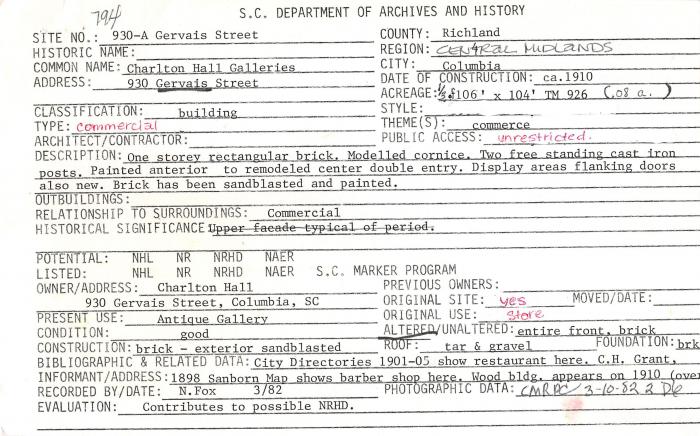 794
S.C. DEPARTMENT OF ARCHIVES AND HISTORY
SITE NO.: 930-A Gervais Street
HISTORIC NAME:
COMMON NAME: Charlton Hall Galleries
ADDRESS: 930 Gervais Street
COUNTY: Richland
REGION: CENTRAL MIDLANDS
CITY: Columbia
DATE OF CONSTRUCTION: ca.1910
ACREAGE: 106' x 104' TM 926 (.08 a.)
CLASSIFICATION: building
TYPE: commercial
ARCHITECT/CONTRACTOR:
STYLE:
THEME(S): commerce
PUBLIC ACCESS: unrestricted.
DESCRIPTION: One storey rectangular brick. Modelled cornice. Two free standing cast iron
posts. Painted anterior to remodeled center double entry. Display areas flanking doors
also new. Brick has been sandblasted and painted.
OUTBUILDINGS:
RELATIONSHIP TO SURROUNDINGS: Commercial
HISTORICAL SIGNIFICANCE: Upper facade typical of period.
POTENTIAL: NHL NR NRHD NAER
LISTED: NHL NR NRHD NAER S.C. MARKER PROGRAM
OWNER/ADDRESS: Charlton Hall
930 Gervais Street, Columbia, SC
PREVIOUS OWNERS:
ORIGINAL SITE: yes MOVED/DATE:
PRESENT USE: Antique Gallery
ORIGINAL USE: store
CONDITION: good
ALTERED/UNALTERED: entire front, brick
CONSTRUCTION: brick - exterior sandblasted ROOF: tar & gravel FOUNDATION: brk
BIBLIOGRAPHIC & RELATED DATA: City Directories 1901-05 show restaurant here. C.H. Grant,
INFORMANT/ADDRESS: 1898 Sanborn Map shows barber shop here. Wood bldg. appears on 1910 (over
RECORDED BY/DATE: N.Fox 3/82 PHOTOGRAPHIC DATA: CMRPC/3-10-82 2 D6
EVALUATION: Contributes to possible NRHD.